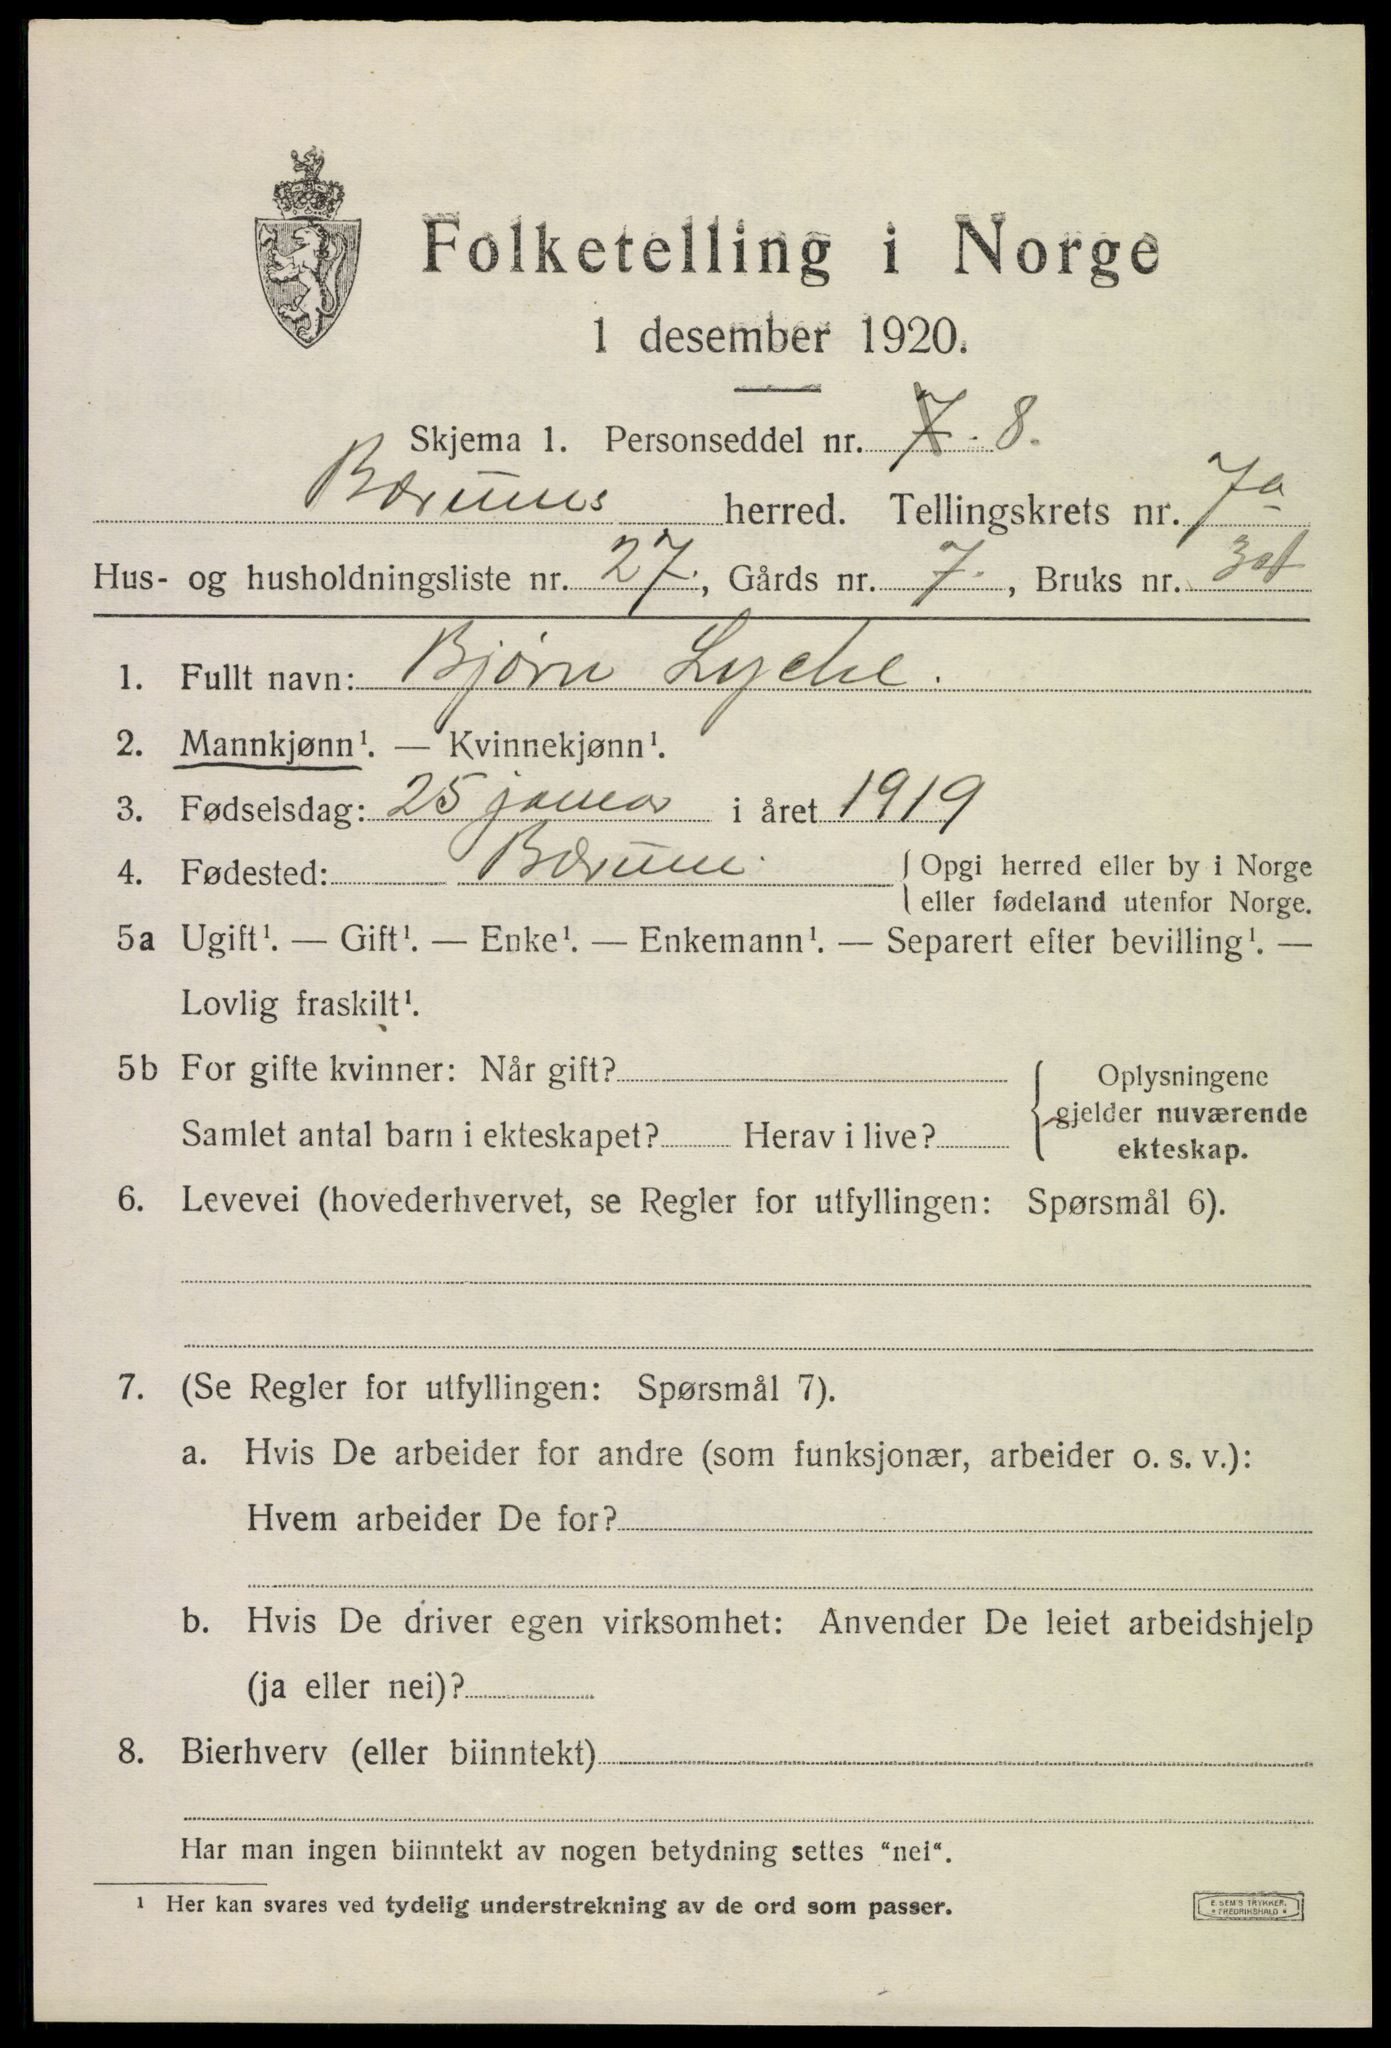 Folketelling i Norge
1 desember 1920.
Skjema 1. Personseddel nr. 7. 8.
Bærums herred. Tellingskrets nr. 7a
Hus- og husholdningsliste nr. 27., Gårds nr. 7., Bruks nr.
1. Fullt navn: Bjørn Lyche.
2. Mannkjønn¹. — Kvinnekjønn¹.
3. Fødselsdag: 25 januar i året 1919
4. Fødested: Bærum. Opgi herred eller by i Norge
eller fødeland utenfor Norge.
5a Ugift¹. — Gift¹. — Enke¹. — Enkemann¹. — Separert efter bevilling¹. —
Lovlig fraskilt¹.
5b For gifte kvinner: Når gift?
Samlet antal barn i ekteskapet? Herav i live?
Oplysningene
gjelder nuværende
ekteskap.
6. Levevei (hovederhvervet, se Regler for utfyllingen: Spørsmål 6).
7. (Se Regler for utfyllingen: Spørsmål 7).
a. Hvis De arbeider for andre (som funksjonær, arbeider o. s. v.):
Hvem arbeider De for?
b. Hvis De driver egen virksomhet: Anvender De leiet arbeidshjelp
(ja eller nei)?
8. Bierhverv (eller biinntekt)
Har man ingen biinntekt av nogen betydning settes "nei".
¹ Her kan svares ved tydelig understrekning av de ord som passer.
E. SEM'S TRYKKERI
FREDRIKSHALD